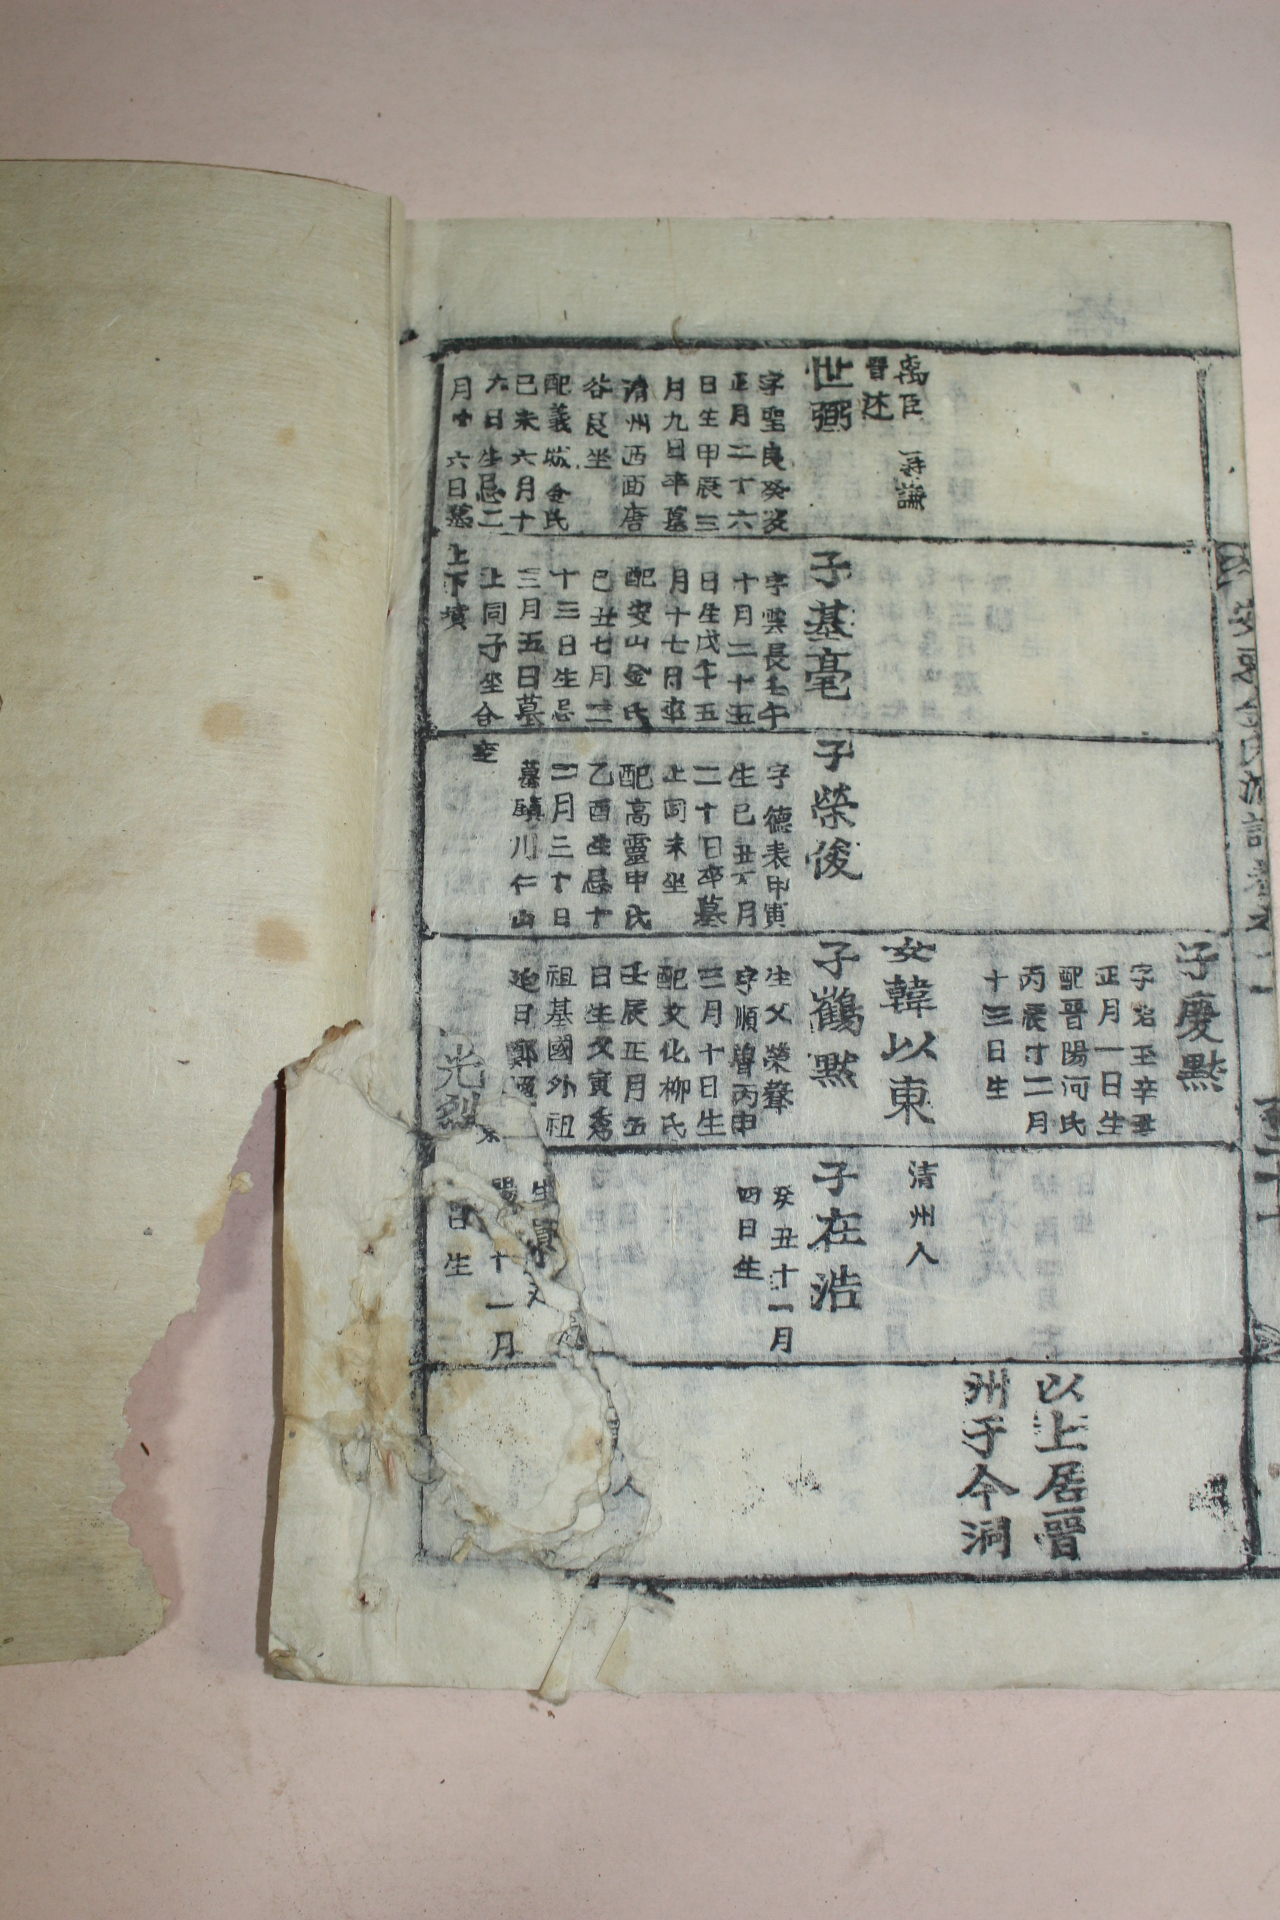 禹臣 再謙
晋述
世弼
字聖良癸亥
正月二十六
日生甲辰三
月九日卒墓
清州西面唐
谷艮坐
配義城金氏
己未六月十
六日生忌二
月 六日墓
上下墳
子基亳
字雲長壬午
十月二十五
日生戊午五
月十七日卒
配安山金氏
己丑七月二
十三日生忌
三月五日墓
上同子坐合
窆
子榮俊
字德表甲寅
生己丑六月
二十日卒墓
上同未坐
配高靈申氏
乙酉生忌十
二月三十日
墓鎮川仁山
子慶黙
字 玉辛丑
正月一日生
配晋陽河氏
丙辰十二月
十三日生
女韓以東
子鶴黙
生父榮聲
字順曾丙申
三月十日生
配文化柳氏
壬辰正月五
日生父寅
祖基國外祖
迎日鄭
光烈
清州人
子在浩
癸丑十一月
四日生
生員
十一月
日生
以上居晋
州于今洞
人
安東金氏派譜卷之一